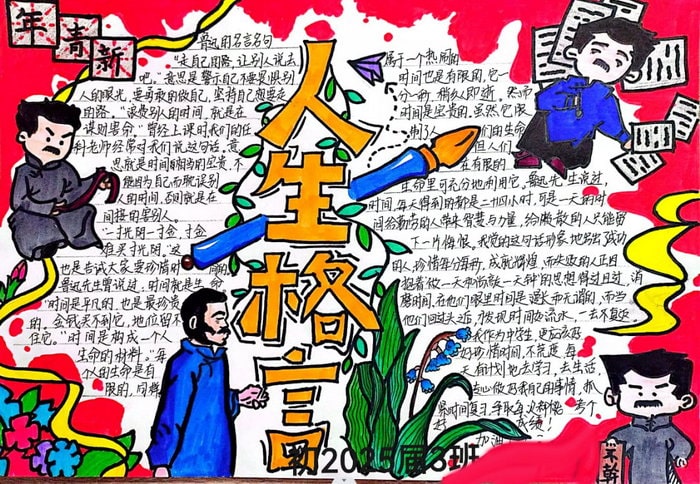 新青年
人生格言
鲁迅的名言名句
“走自己的路,让别人说去
吧。”意思是警示自己不要畏惧别
人的眼光,要勇敢的做自己,坚持自己想要走
的路。“浪费别人的时间,就是在
谋财害命。”曾经上课时我们的任
科老师经常对我们说这句话,意
思就是时间的宝贵,不
能因为自己而耽误别
人的时间,否则就是在
间接的害别人。
“一寸光阴一寸金,寸金
难买寸光阴。”这
也是告诉大家要珍惜时间的。
鲁迅先生曾说过,时间就是生命
“时间是平凡的,也是最珍贵
的。金钱买不到它,地位留不
住它。”“时间是构成一个人
生命的材料。”每
个人的生命是有
限的,同样
属于一个人的
时间也是有限的,它一
分一秒,稍纵即逝。
时间是宝贵的,虽然它限
制了人们的生命
但人们
在有限的
生命里可充分地利用它。鲁迅先生说过,
时间,每天得到的都是二十四小时,可是一天的时
间给勤劳的人带来智慧与力量,给懒散的人只能留
下一片悔恨。我觉的这句话形象地指出了成功
的人,珍惜每分每秒,成就辉煌,而失败的人正
抱着“做一天和尚敲一天钟”的思想得过且过,消
磨时间,在他们眼里时间是漫长而无谓的,而当
他们回过头,才发现时间如流水,一去不复返
我作为中学生,更应该
好好珍惜时间,不荒废每一
天,有计划地去学习,去生活,
专心做好我自己的事情,抓
紧时间复习,争取每次都能考个
好成绩!
加油
不干
初2025届3班